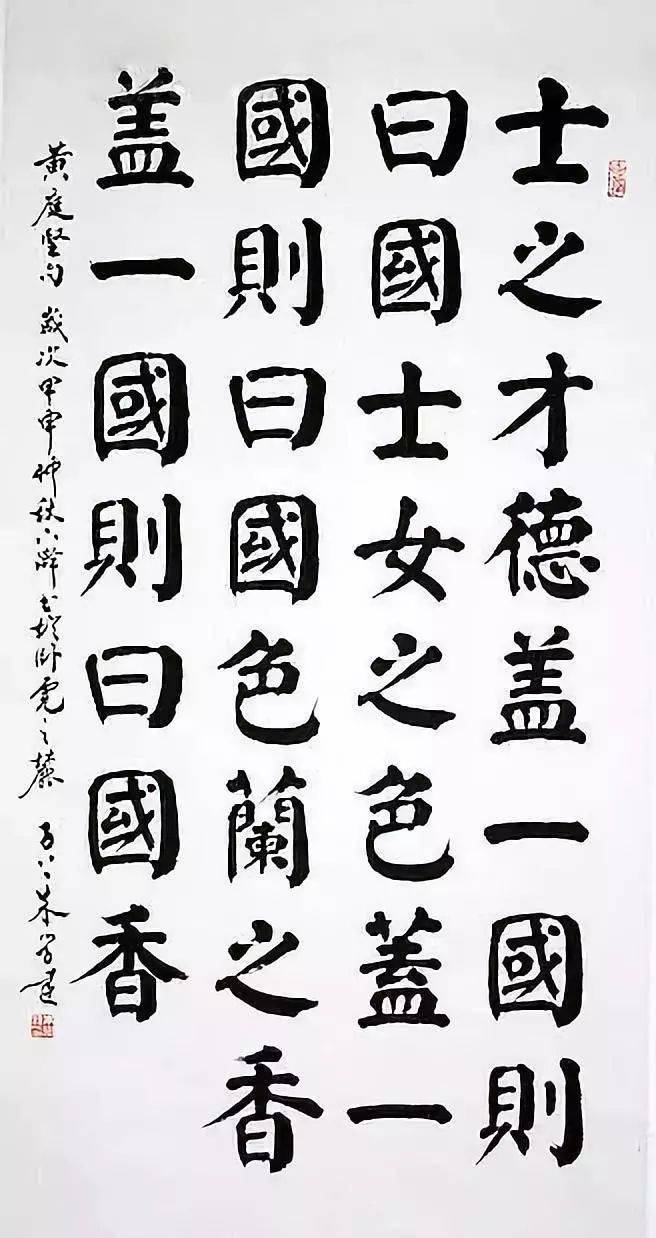 士之才德盖一國則
曰國士女之色蓋一
國則曰國色蘭之香
盖一國則曰國香
黄庭坚句 歲次甲申仲秋 書於卧虎之麓